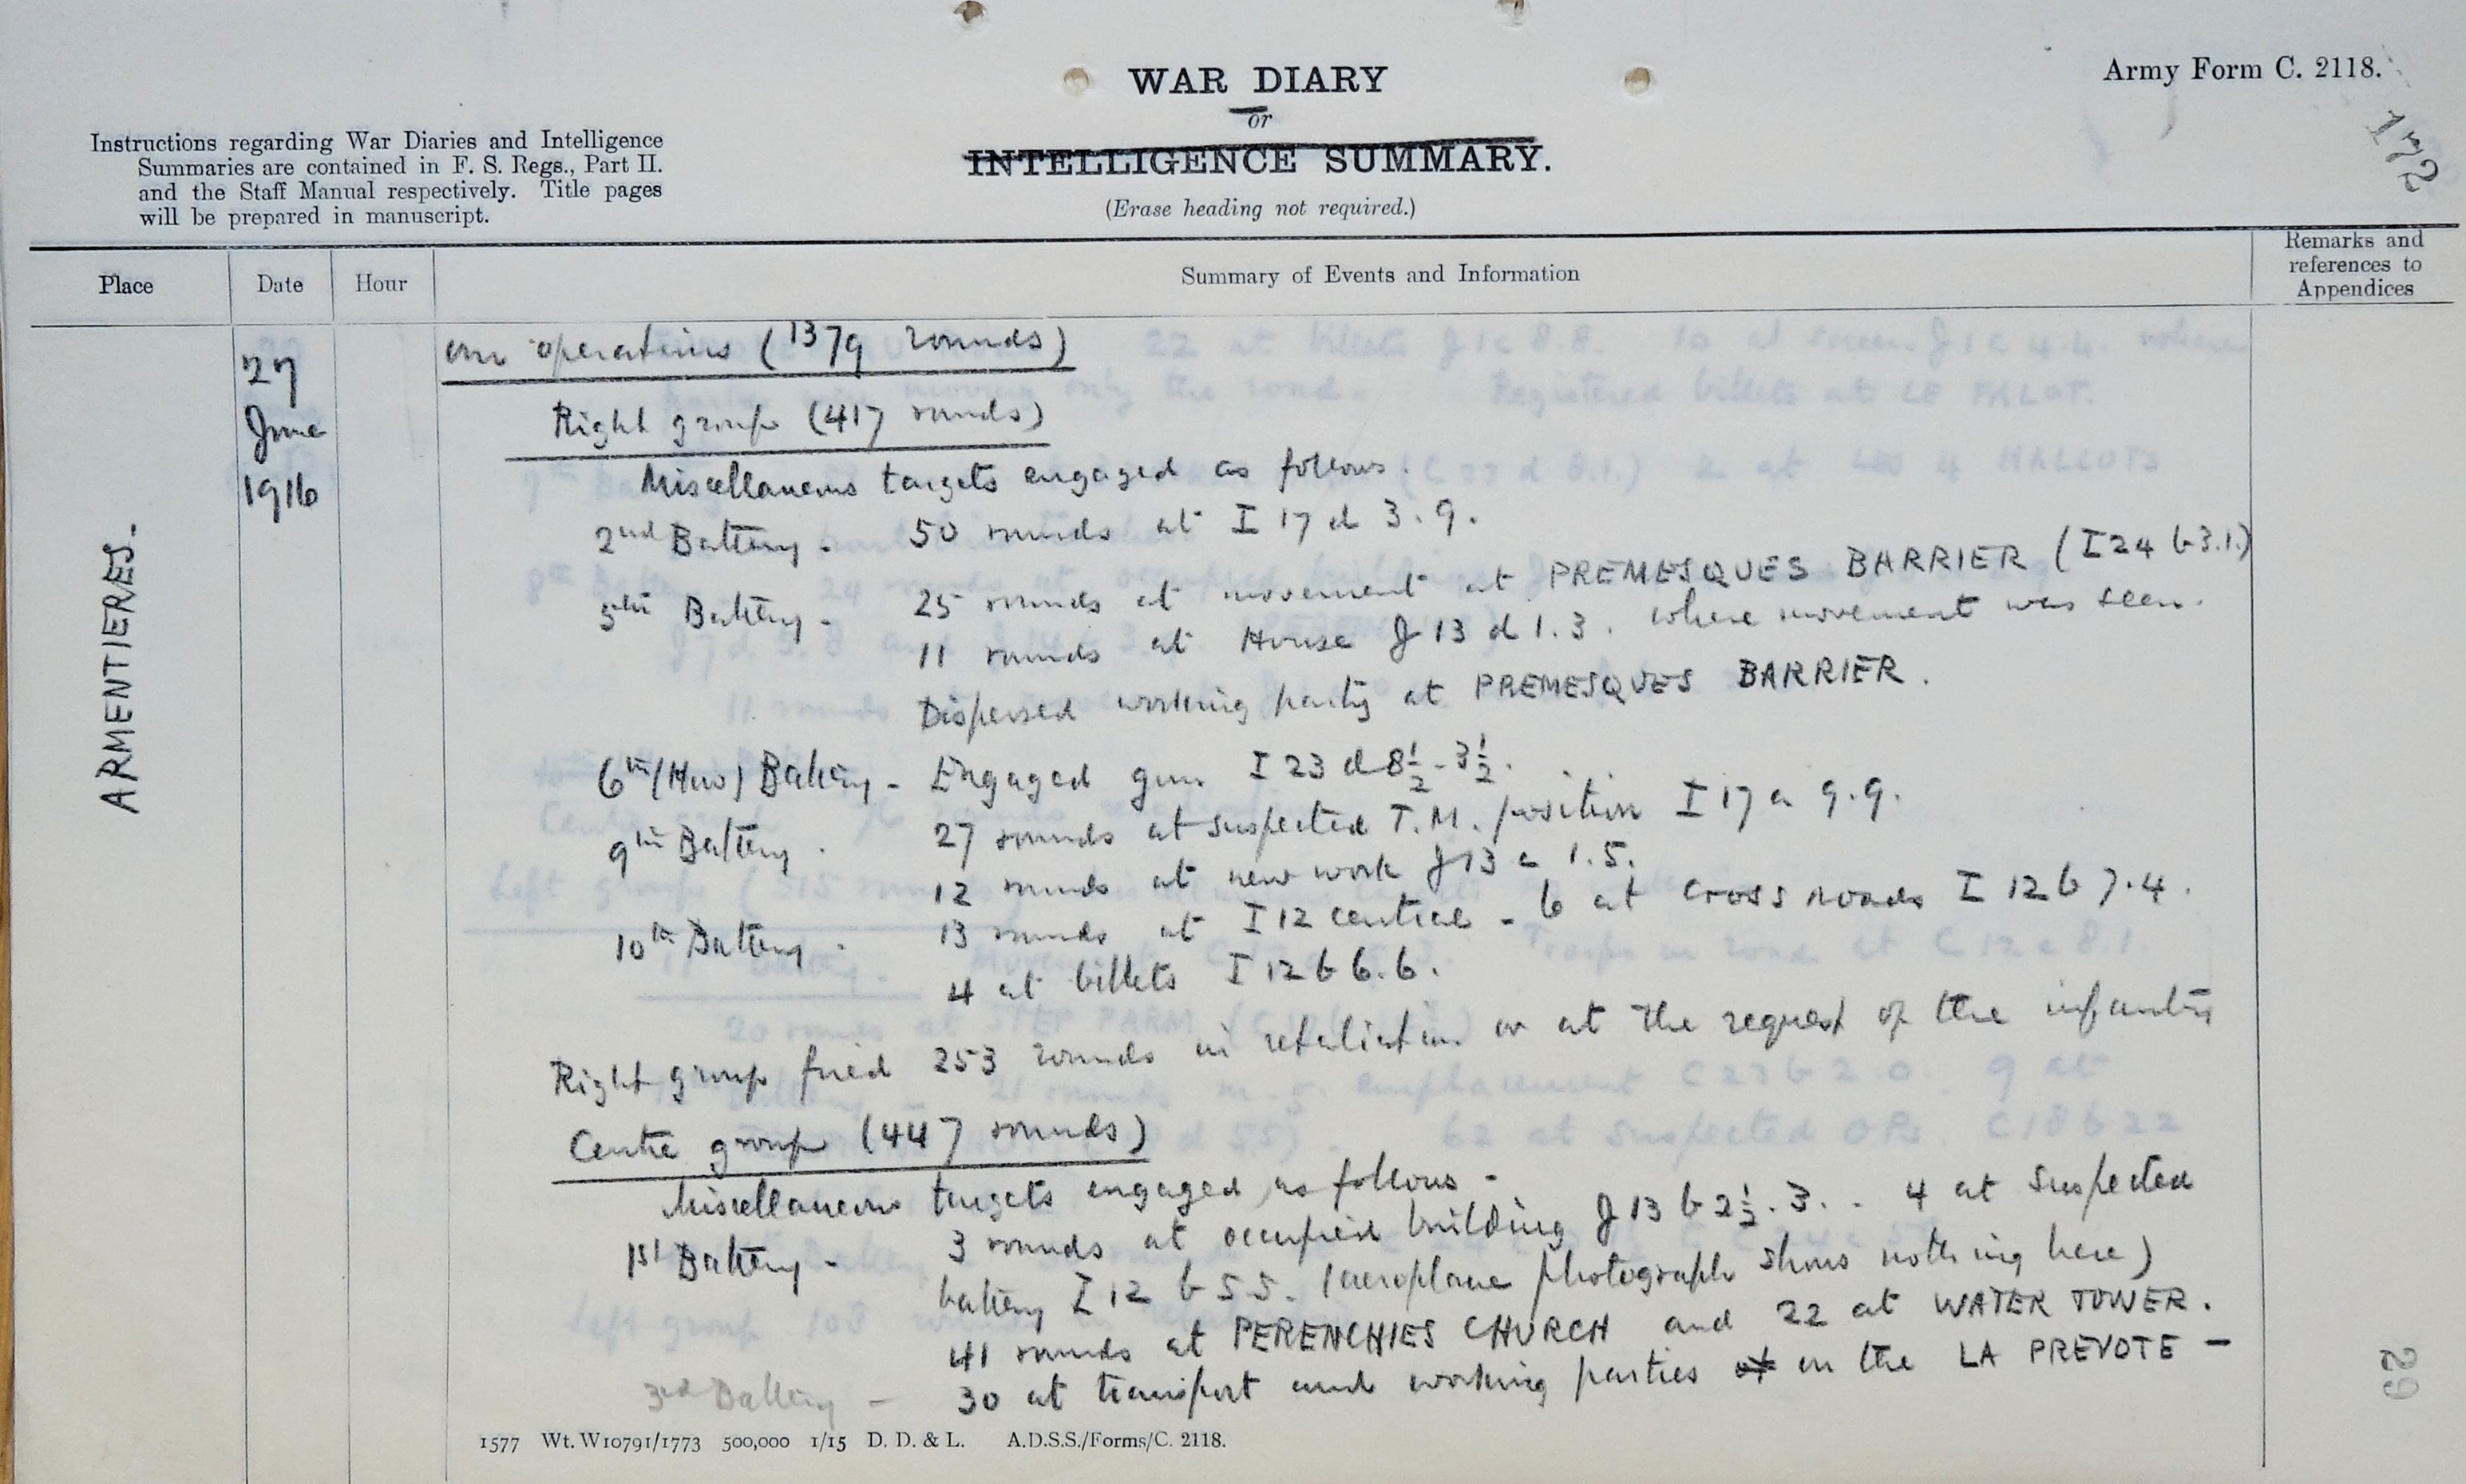 Army Form C. 2118.
172
WAR DIARY
or
INTELLIGENCE SUMMARY.
(Erase heading not required.)
Instructions regarding War Diaries and Intelligence
Summaries are contained in F. S. Regs., Part II.
and the Staff Manual respectively. Title pages
will be prepared in manuscript.
Place Date Hour Summary of Events and Information Remarks and references to Appendices
ARMENTIERES.
27
June
1916
Our operations (1379 rounds)
Right group (417 rounds)
Miscellaneous targets engaged as follows.
2nd Battery - 50 rounds at I 17 d 3.9.
5th Battery - 25 rounds at movement at PREMESQUES BARRIER (I 24 b 3.1.)
11 rounds at House J 13 d 1.3. where movement was seen.
Dispersed working party at PREMESQUES BARRIER.
6th (How) Battery - Engaged gun I 23 d 8½-3½.
9th Battery. 27 rounds at suspected T.M. position I 17 a 9.9.
12 rounds at new work J 13 a 1.5.
10th Battery. 13 rounds at I 12 central - 6 at cross roads I 12 b 7.4.
4 at billets I 12 b 6.6.
Right group fired 253 rounds in retaliation or at the request of the infantry
Centre group (447 rounds)
Miscellaneous targets engaged as follows -
1st Battery - 3 rounds at occupied building J 13 b 2½.3. - 4 at suspected
battery I 12 b 5 5. (aeroplane photograph shows nothing here)
41 rounds at PERENCHIES CHURCH and 22 at WATER TOWER.
3rd Battery - 30 at transport and working parties at on the LA PREVOTE -
29
1577 Wt. W10791/1773 500,000 1/15 D. D. & L. A.D.S.S./Forms/C. 2118.